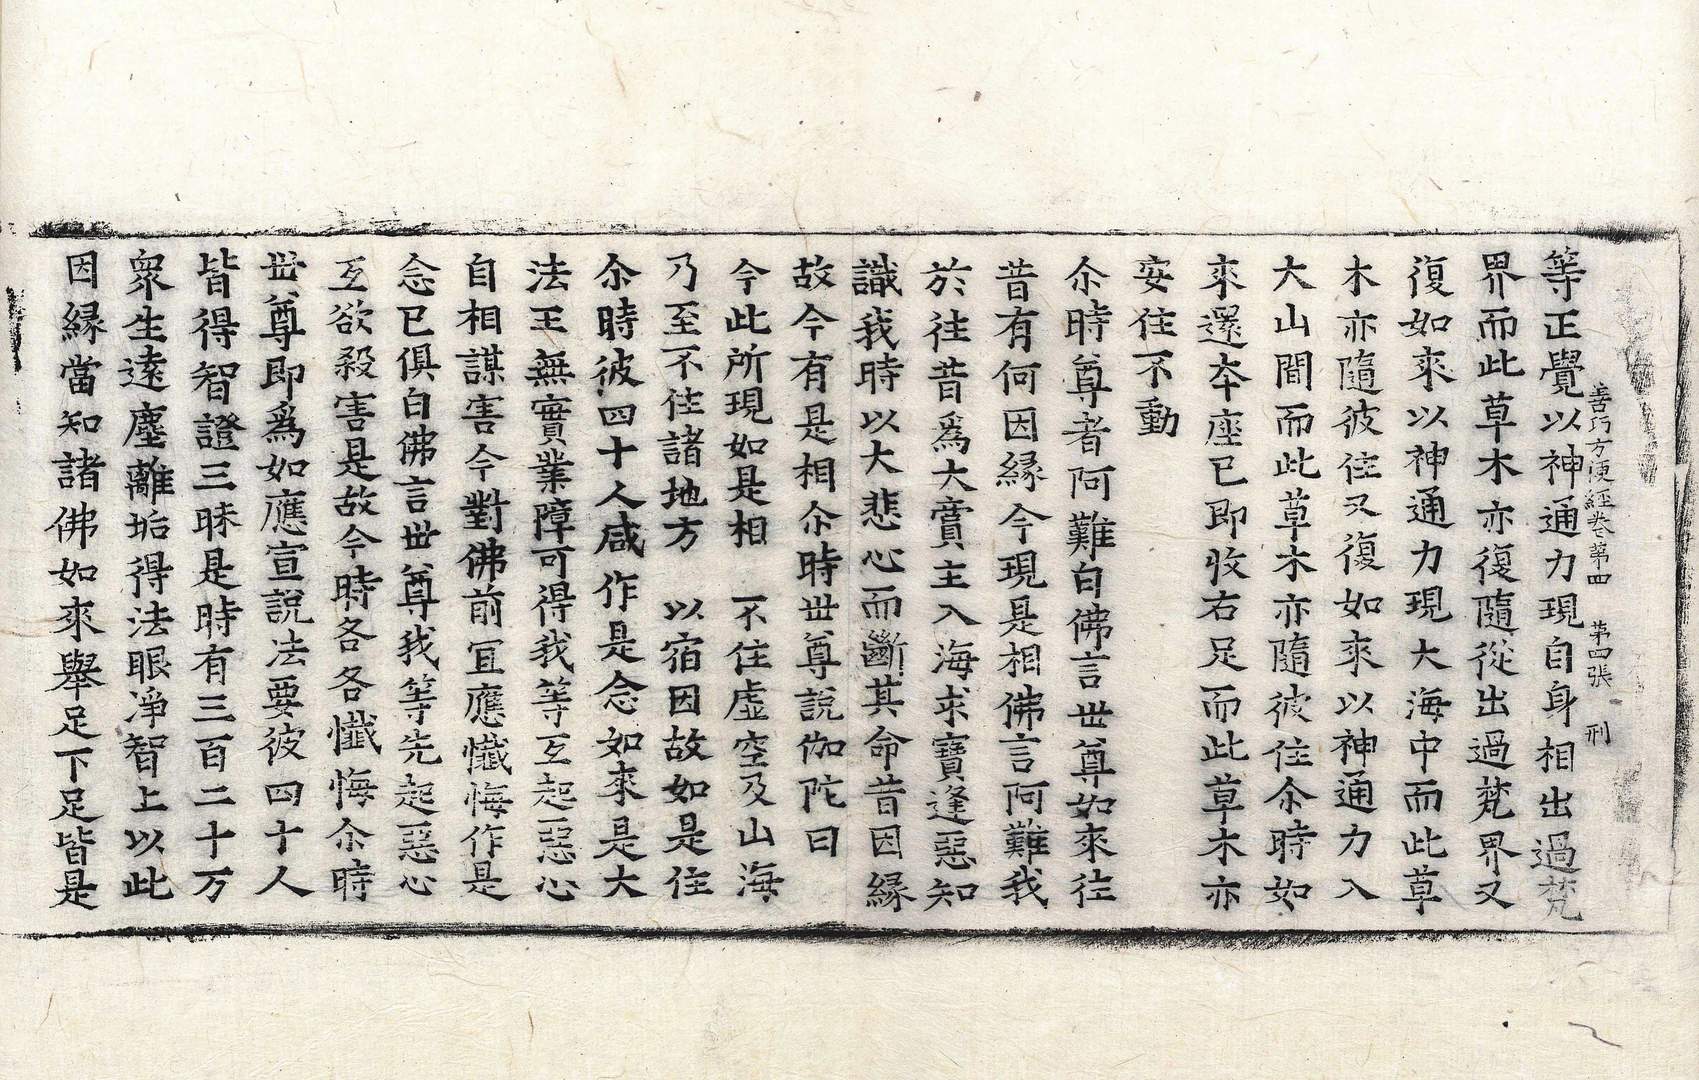 善巧方便經卷第四　第四張　刑
等正覺以神通力現自身相出過梵
界而此草木亦復隨從出過梵界又
復如來以神通力現大海中而此草
木亦隨彼住又復如來以神通力入
大山間而此草木亦隨彼住尒時如
來還本座已即收右足而此草木亦
安住不動
尒時尊者阿難白佛言世尊如來往
昔有何因緣今現是相佛言阿難我
於往昔爲大賞主入海求寶逢惡知
識我時以大悲心而斷其命昔因緣
故今有是相尒時世尊說伽陀曰
今此所現如是相　不住虛空及山海
乃至不住諸地方　以宿因故如是住
尒時彼四十人咸作是念如來是大
法王無實業障可得我等互起惡心
自相謀害今對佛前宜應懺悔作是
念已俱白佛言世尊我等先起惡心
互欲殺害是故今時各各懺悔尒時
世尊即爲如應宣說法要彼四十人
皆得智證三昧是時有三百二十万
衆生遠塵離垢得法眼淨智上以此
因緣當知諸佛如來舉足下足皆是